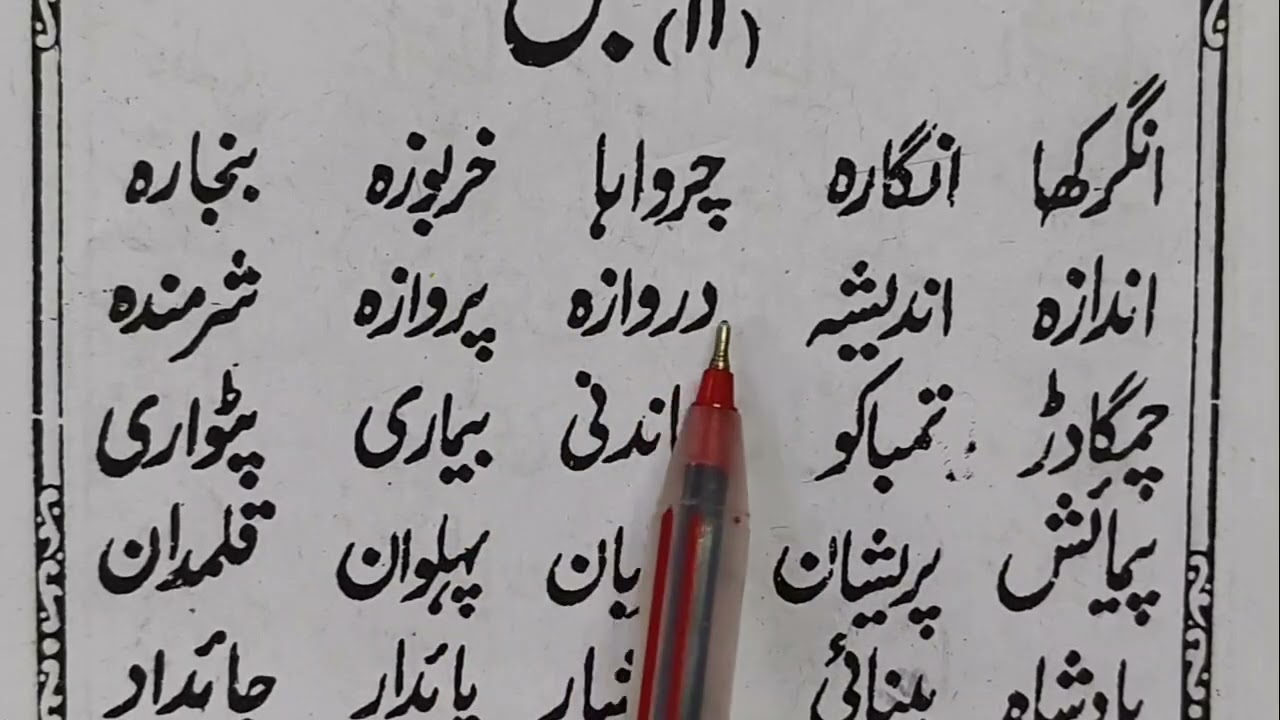 (۱۱)
انگرکھا انگارہ چرواہا خربوزہ بنجارہ
اندازہ اندیشہ دروازہ پروازہ شرمندہ
چمگادڑ تمباکو بیماری پٹواری
پیمائش پریشان پہلوان قلمدان
بادشاہ بینائی پائدار جائداد